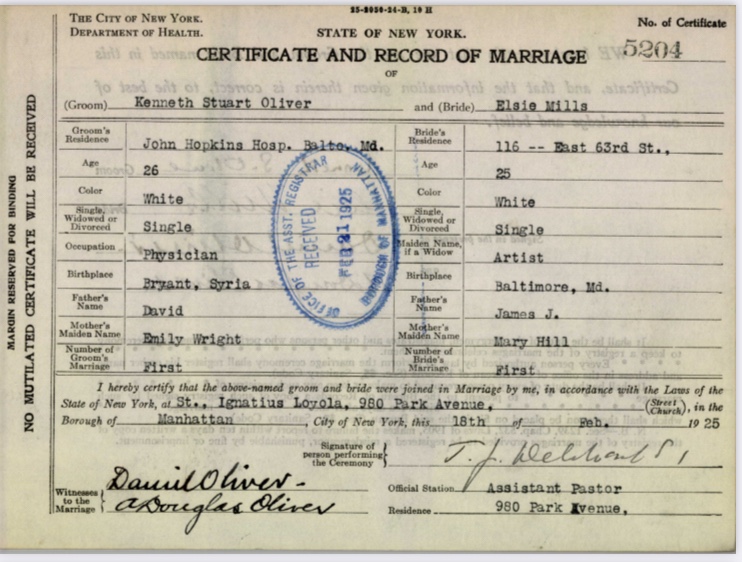 25-2050-24-B, 10 H
THE CITY OF NEW YORK.
DEPARTMENT OF HEALTH.
STATE OF NEW YORK.
No. of Certificate
5204
CERTIFICATE AND RECORD OF MARRIAGE
OF
(Groom) Kenneth Stuart Oliver and (Bride) Elsie Mills
Groom's Residence John Hopkins Hosp. Balto. Md. Bride's Residence 116 -- East 63rd St.,
Age 26 Age 25
Color White Color White
Single, Widowed or Divorced Single Single, Widowed or Divorced Single
Occupation Physician Maiden Name, if a Widow Artist
Birthplace Bryant, Syria Birthplace Baltimore, Md.
Father's Name David Father's Name James J.
Mother's Maiden Name Emily Wright Mother's Maiden Name Mary Hill
Number of Groom's Marriage First Number of Bride's Marriage First
OFFICE OF THE ASST. REGISTRAR
RECEIVED
FEB 21 1925
BOROUGH OF MANHATTAN
I hereby certify that the above-named groom and bride were joined in Marriage by me, in accordance with the Laws of the
State of New York, at St., Ignatius Loyola, 980 Park Avenue, (Street Church), in the
Borough of Manhattan, City of New York, this 18th of Feb. 1925
Signature of person performing the Ceremony T. J.
Witnesses to the Marriage
Daniel Oliver-
A Douglas Oliver
Official Station Assistant Pastor
Residence 980 Park Avenue,
MARGIN RESERVED FOR BINDING
NO MUTILATED CERTIFICATE WILL BE RECEIVED